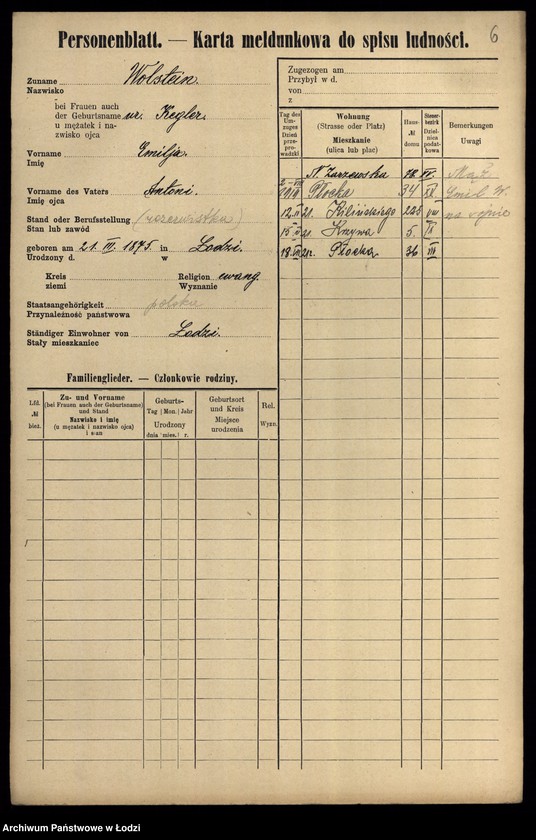 6
Personenblatt. — Karta meldunkowa do spisu ludności.
Zuname Wolstein.
Nazwisko
bei Frauen auch
der Geburtsname ur. Kegler.
u mężatek i na-
zwisko ojca
Vorname Emilja.
Imię
Vorname des Vaters Antoni.
Imię ojca
Stand oder Berufsstellung
Stan lub zawód
geboren am 21. III. 1875. in Łodzi.
Urodzony d. w
Kreis Religion ewang.
ziemi Wyznanie
Staatsangehörigkeit polska
Przynależność państwowa
Ständiger Einwohner von Łodzi.
Stały mieszkaniec
Familienglieder. — Członkowie rodziny.
Lfd. № bież.
Zu- und Vorname
(bei Frauen auch der Geburtsname)
und Stand
Nazwisko i imię
(u mężatek i nazwisko ojca)
i s-an
Geburts-
Tag | Mon. | Jahr
Urodzony
dnia | mies. | r.
Geburtsort
und Kreis
Miejsce
urodzenia
Rel.
Wyzn.
Zugezogen am
Przybył w d.
von
z
Tag des Um- zuges
Dzień prze- pro- wadzki
Wohnung
(Strasse oder Platz)
Mieszkanie
(ulica lub plac)
Haus- № domu
Steuer- bezirk
Dziel- nica podat- kowa
Bemerkungen
Uwagi
N. Zarzewska IV. Mąż
Płocka 34 Emil W.
12. Kilińskiego 225 VIII
15. Krzywa 5. IX
18. Płocka 36 III
Archiwum Państwowe w Łodzi